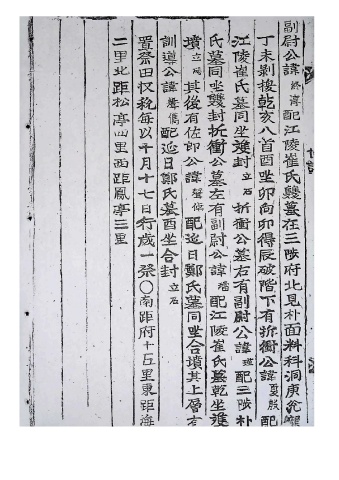 副尉公諱終濂配江陵崔氏雙墓在三陟府北見朴面料科洞庚兌龍
丁未剝換乾亥八首酉坐卯向卯得辰破階下有折衝公諱夏殷配
江陵崔氏墓同坐雙封立石折衝公墓右有副尉公諱班配三陟朴
氏墓同坐雙封折衝公墓左有副尉公諱瑠配江陵崔氏墓乾坐進
墳立石其後有佐郎公諱聲俊配迎日鄭氏墓同坐合墳其上層有
訓導公諱聲儁配迎日鄭氏墓酉坐合封立石
置祭田収稅每以十月十七日行歲一祭○南距府十五里東距海
二里北距松亭四里西距鳳亭三里